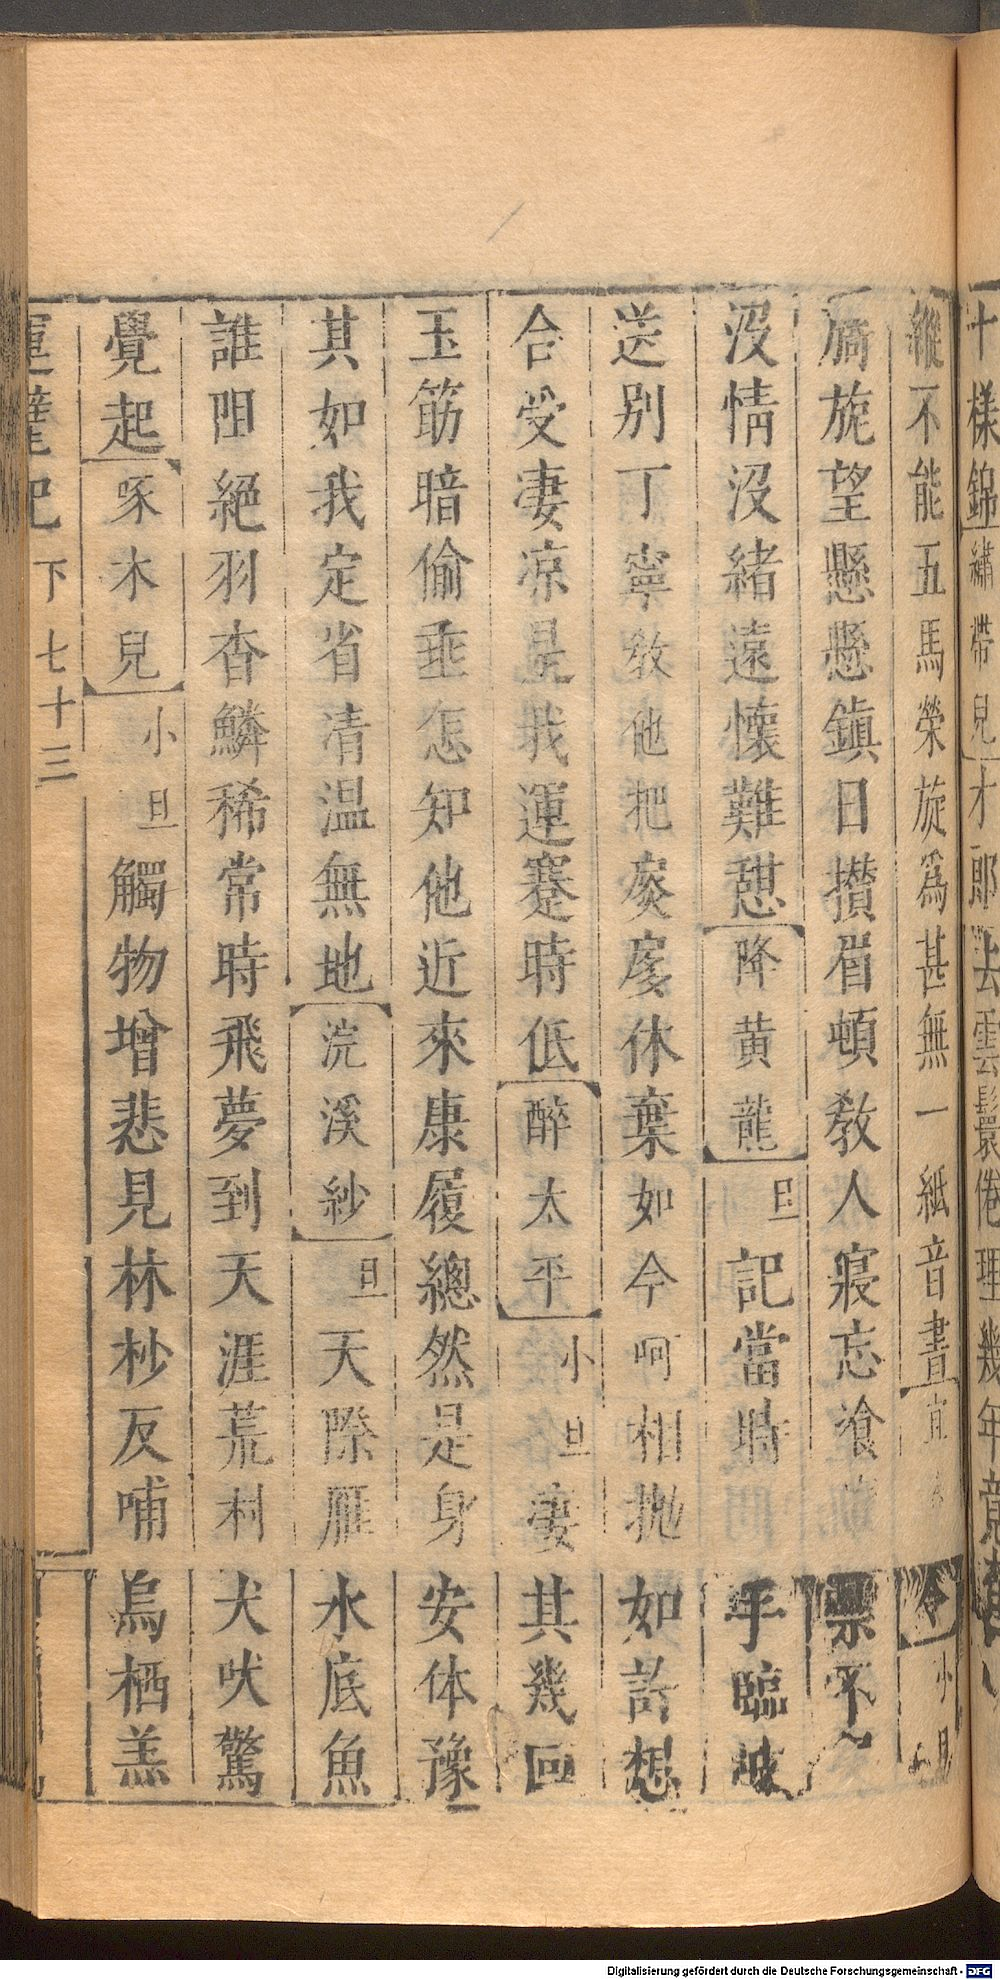 十樣錦繡帶兒才郎去雲鬟倦理幾年
縱不能五馬榮旋爲甚無一紙音書宜春令小旦
旖旎望懸懸鎮日攢眉頓教人寢忘飡
沒情沒緒遠懷難憇降黄龍旦記當時手臨
送别丁寧教他把扊扅休棄如今呵相抛如許想
合受凄凉是我運蹇時低醉太平小旦凄其幾回
玉筯暗偷垂怎知他近來康履總然是身安体豫
其如我定省清温無地浣溪紗旦天際雁水底魚
誰阻絕羽杳鱗稀常時飛夢到天涯荒村犬吠驚
覺起啄木兒小旦觸物增悲見林杪反哺烏栖羔
運甓記下七十三
Digitalisierung gefördert durch die Deutsche Forschungsgemeinschaft - DFG